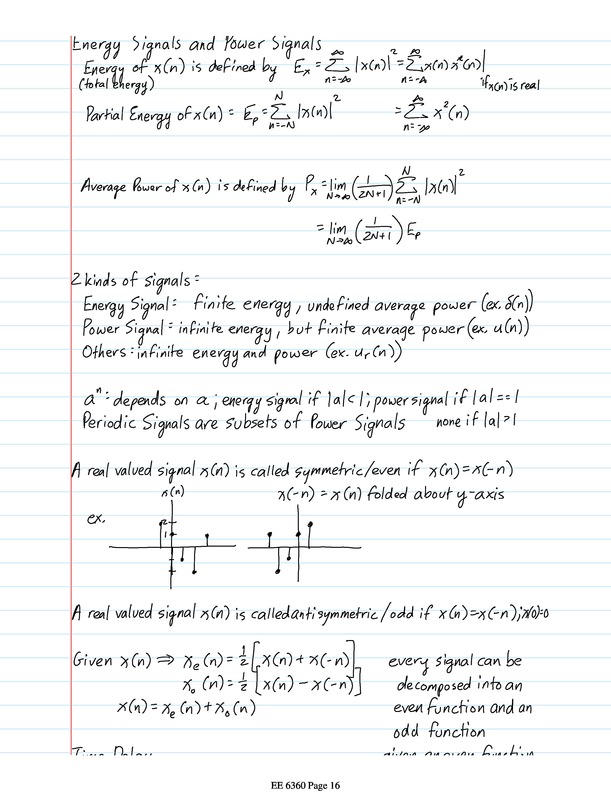 Energy Signals and Power Signals
Energy of x(n) is defined by E_x = ∞∑n=-∞ |x(n)|² = ∞∑n=-∞ x(n) x*(n)|
(total energy) if x(n) is real
Partial Energy of x(n) = E_p = N∑n=-N |x(n)|² = ∞∑n=-∞ x²(n)
Average Power of x(n) is defined by P_x = lim N→∞ (1/2N+1) N∑n=-N |x(n)|²
= lim N→∞ (1/2N+1) E_p
2 kinds of signals:
Energy Signal: finite energy, undefined average power (ex. δ(n))
Power Signal: infinite energy, but finite average power (ex. u(n))
Others: infinite energy and power (ex. u_r(n))
aⁿ: depends on a; energy signal if |a|<1; power signal if |a|==1
Periodic Signals are subsets of Power Signals none if |a|>1
A real valued signal x(n) is called symmetric/even if x(n)=x(-n)
x(n) x(-n) = x(n) folded about y-axis
ex. 2
1
A real valued signal x(n) is called antisymmetric/odd if x(n)=x(-n); x(0)=0
Given x(n) ⇒ x_e(n) = 1/2 [x(n) + x(-n)] every signal can be
x_o(n) = 1/2 [x(n) - x(-n)] decomposed into an
x(n) = x_e(n) + x_o(n) even function and an
odd function
Time Delay given an even function
EE 6360 Page 16